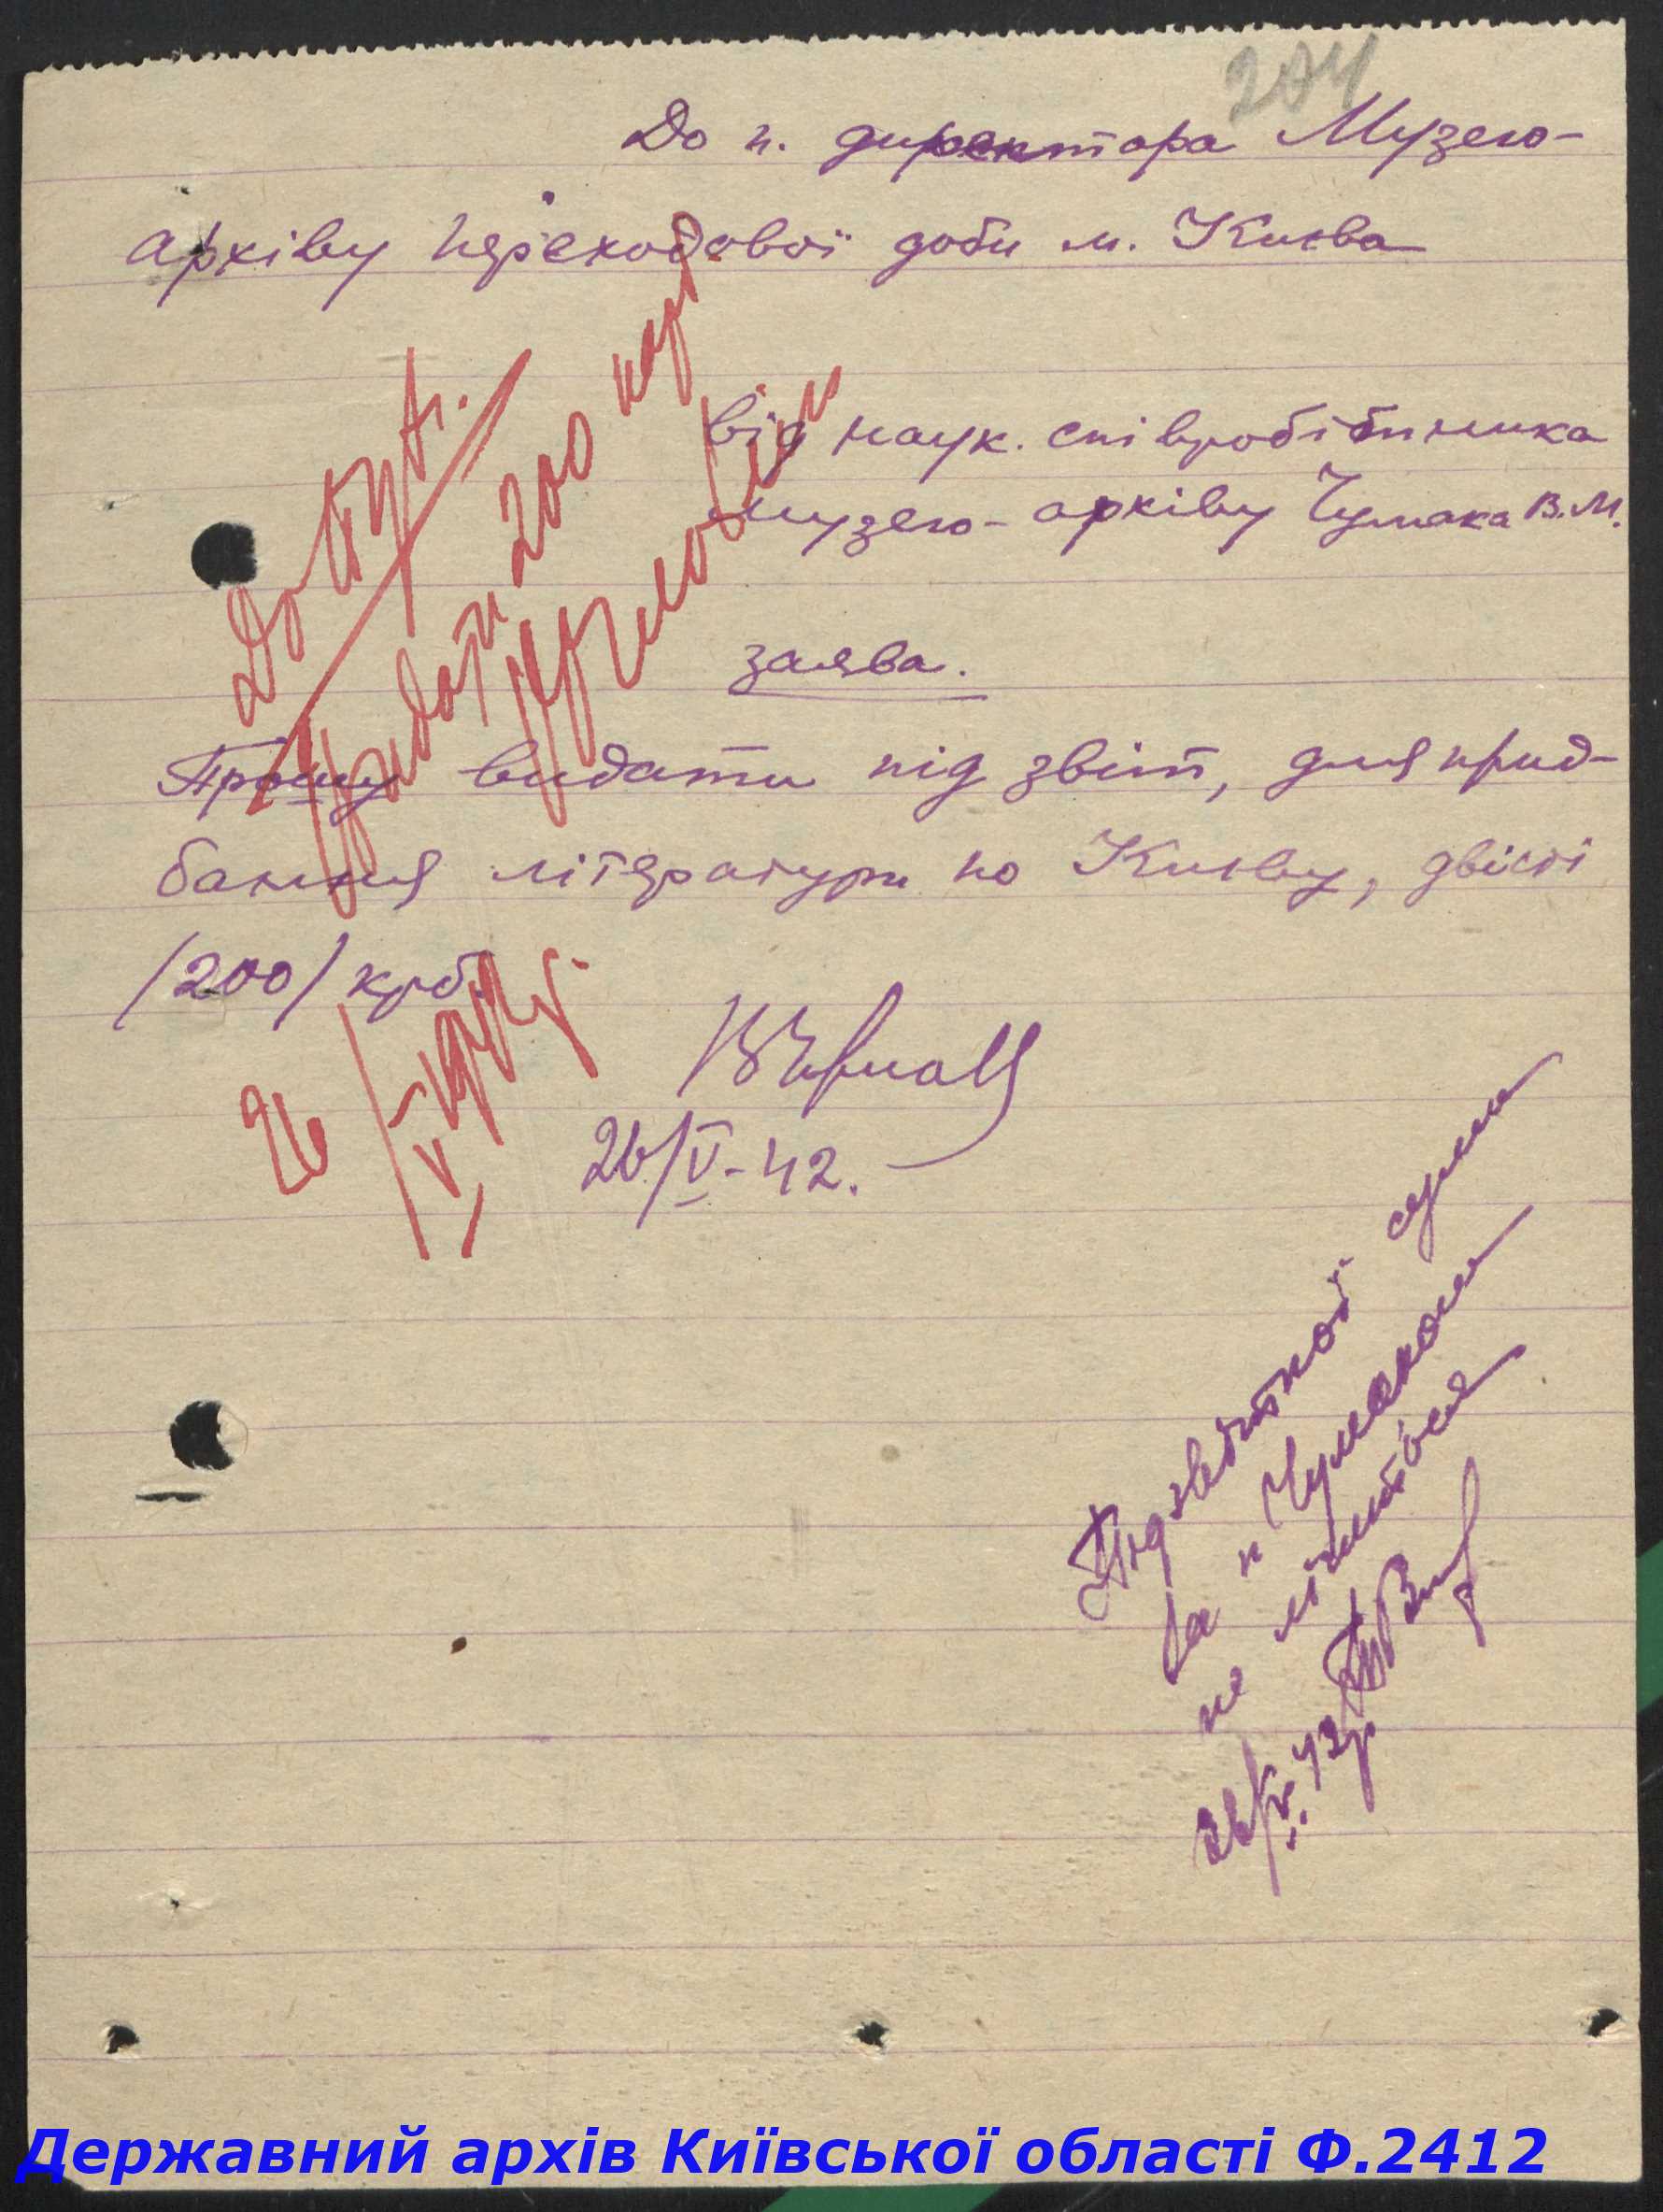 204
До п. директора Музею-
архіву переходової доби м. Києва
від наук. співробітника
музею-архіву Чумака В.М.
заява.
Прошу видати під звіт, для прид-
бання літератури по Києву, двісті
/200/ крб.
26/V-42.
До бух.
Видати 200 карб
26/V 1942 р.
Підзвітної суми
за п Чумаком
не лічиться
26/V 42 р
Державний архів Київської області Ф.2412